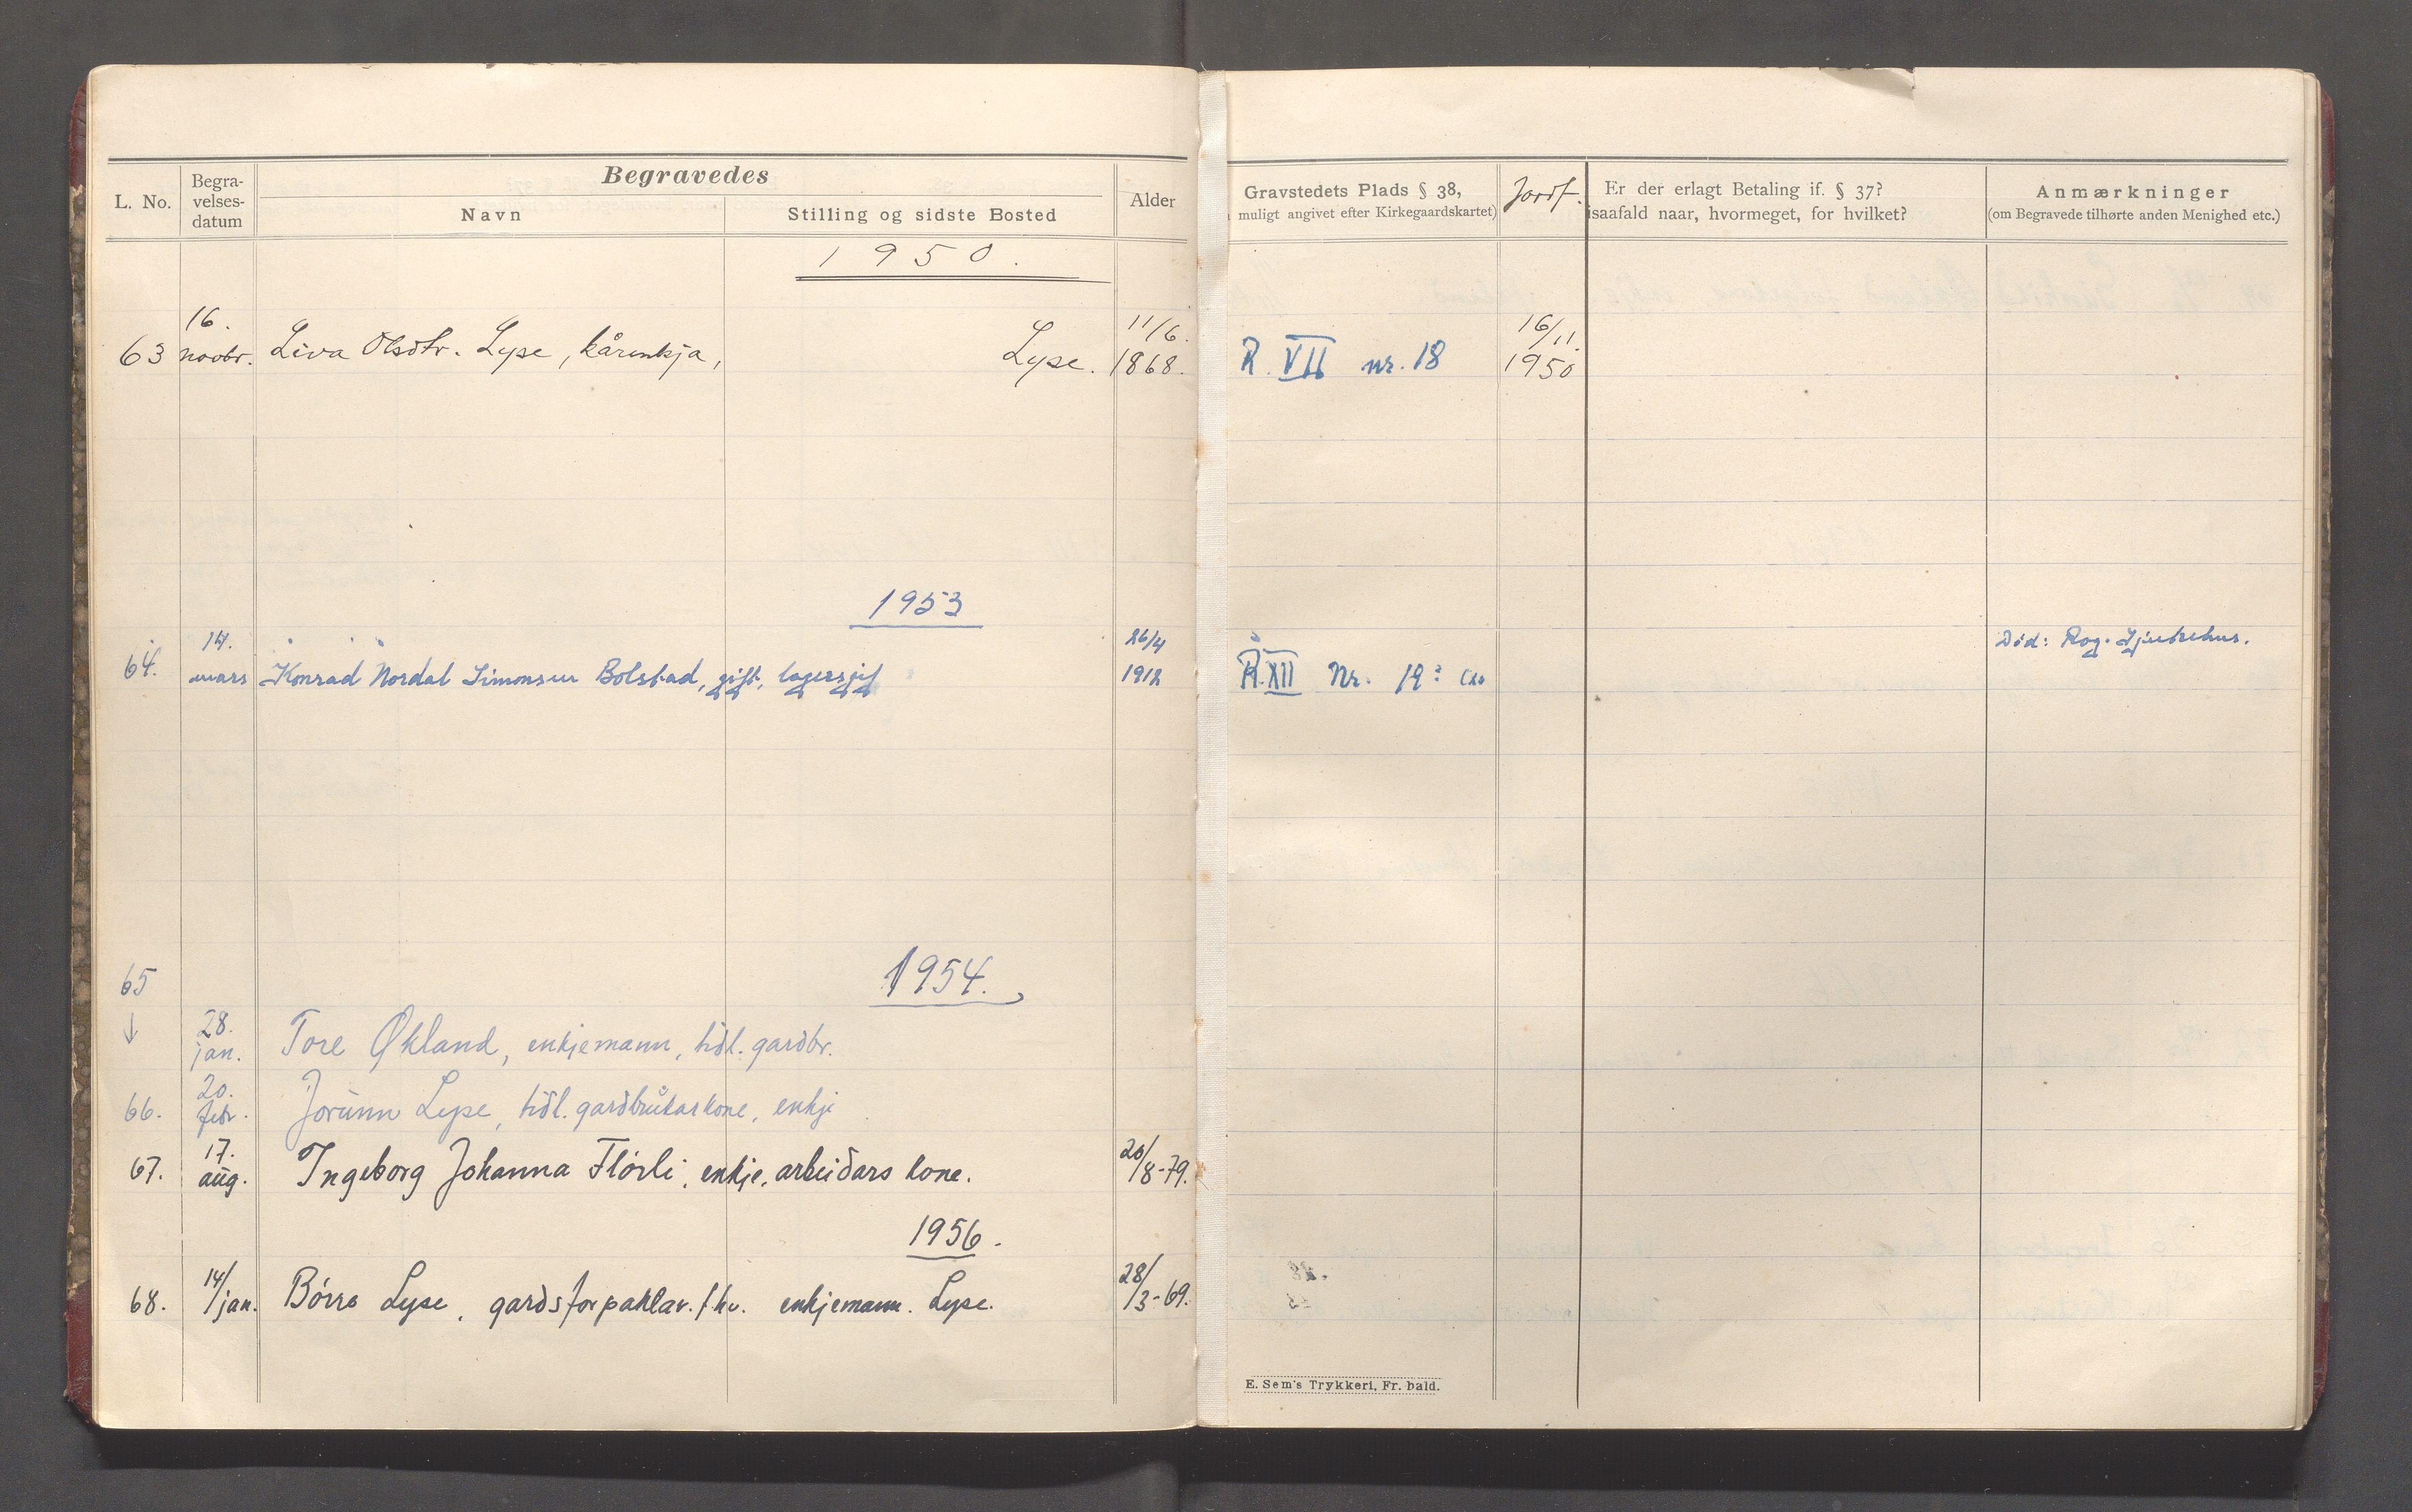 Begravedes
L. No.
Begra-
velses-
datum
Navn
Stilling og sidste Bosted
Alder
Gravstedets Plads § 38,
muligt angivet efter Kirkegaardskartet)
Jordf.
Er der erlagt Betaling if. § 37?
isaafald naar, hvormeget, for hvilket?
Anmærkninger
(om Begravede tilhørte anden Menighed etc.)
1950.
16. 11/6. 16/11.
63 novbr. Liva Olsdtr. Lyse, kårenkja, Lyse. 1868. R. VII nr. 18 1950
1953
14. 26/4 Død: Rog. Sjukehus.
64. mars Konrad Nordal Simonsen Bolstad, gift, 1912 R. XII Nr. 19?
65 1954.
28.
jan. Tore Økland, enkjemann, tidl. gardbr.
20.
66. febr. Jorunn Lyse, tidl. gardbrukarkone, enkje
17. 20/8-79.
67. aug. Ingeborg Johanna Flørli, enkje, arbeidars kone.
1956.
14/ 28/3-69.
68. jan. Børre Lyse, gardsforpaktar f.hv. enkjemann. Lyse.
E. Sem's Trykkeri, Fr. hald.